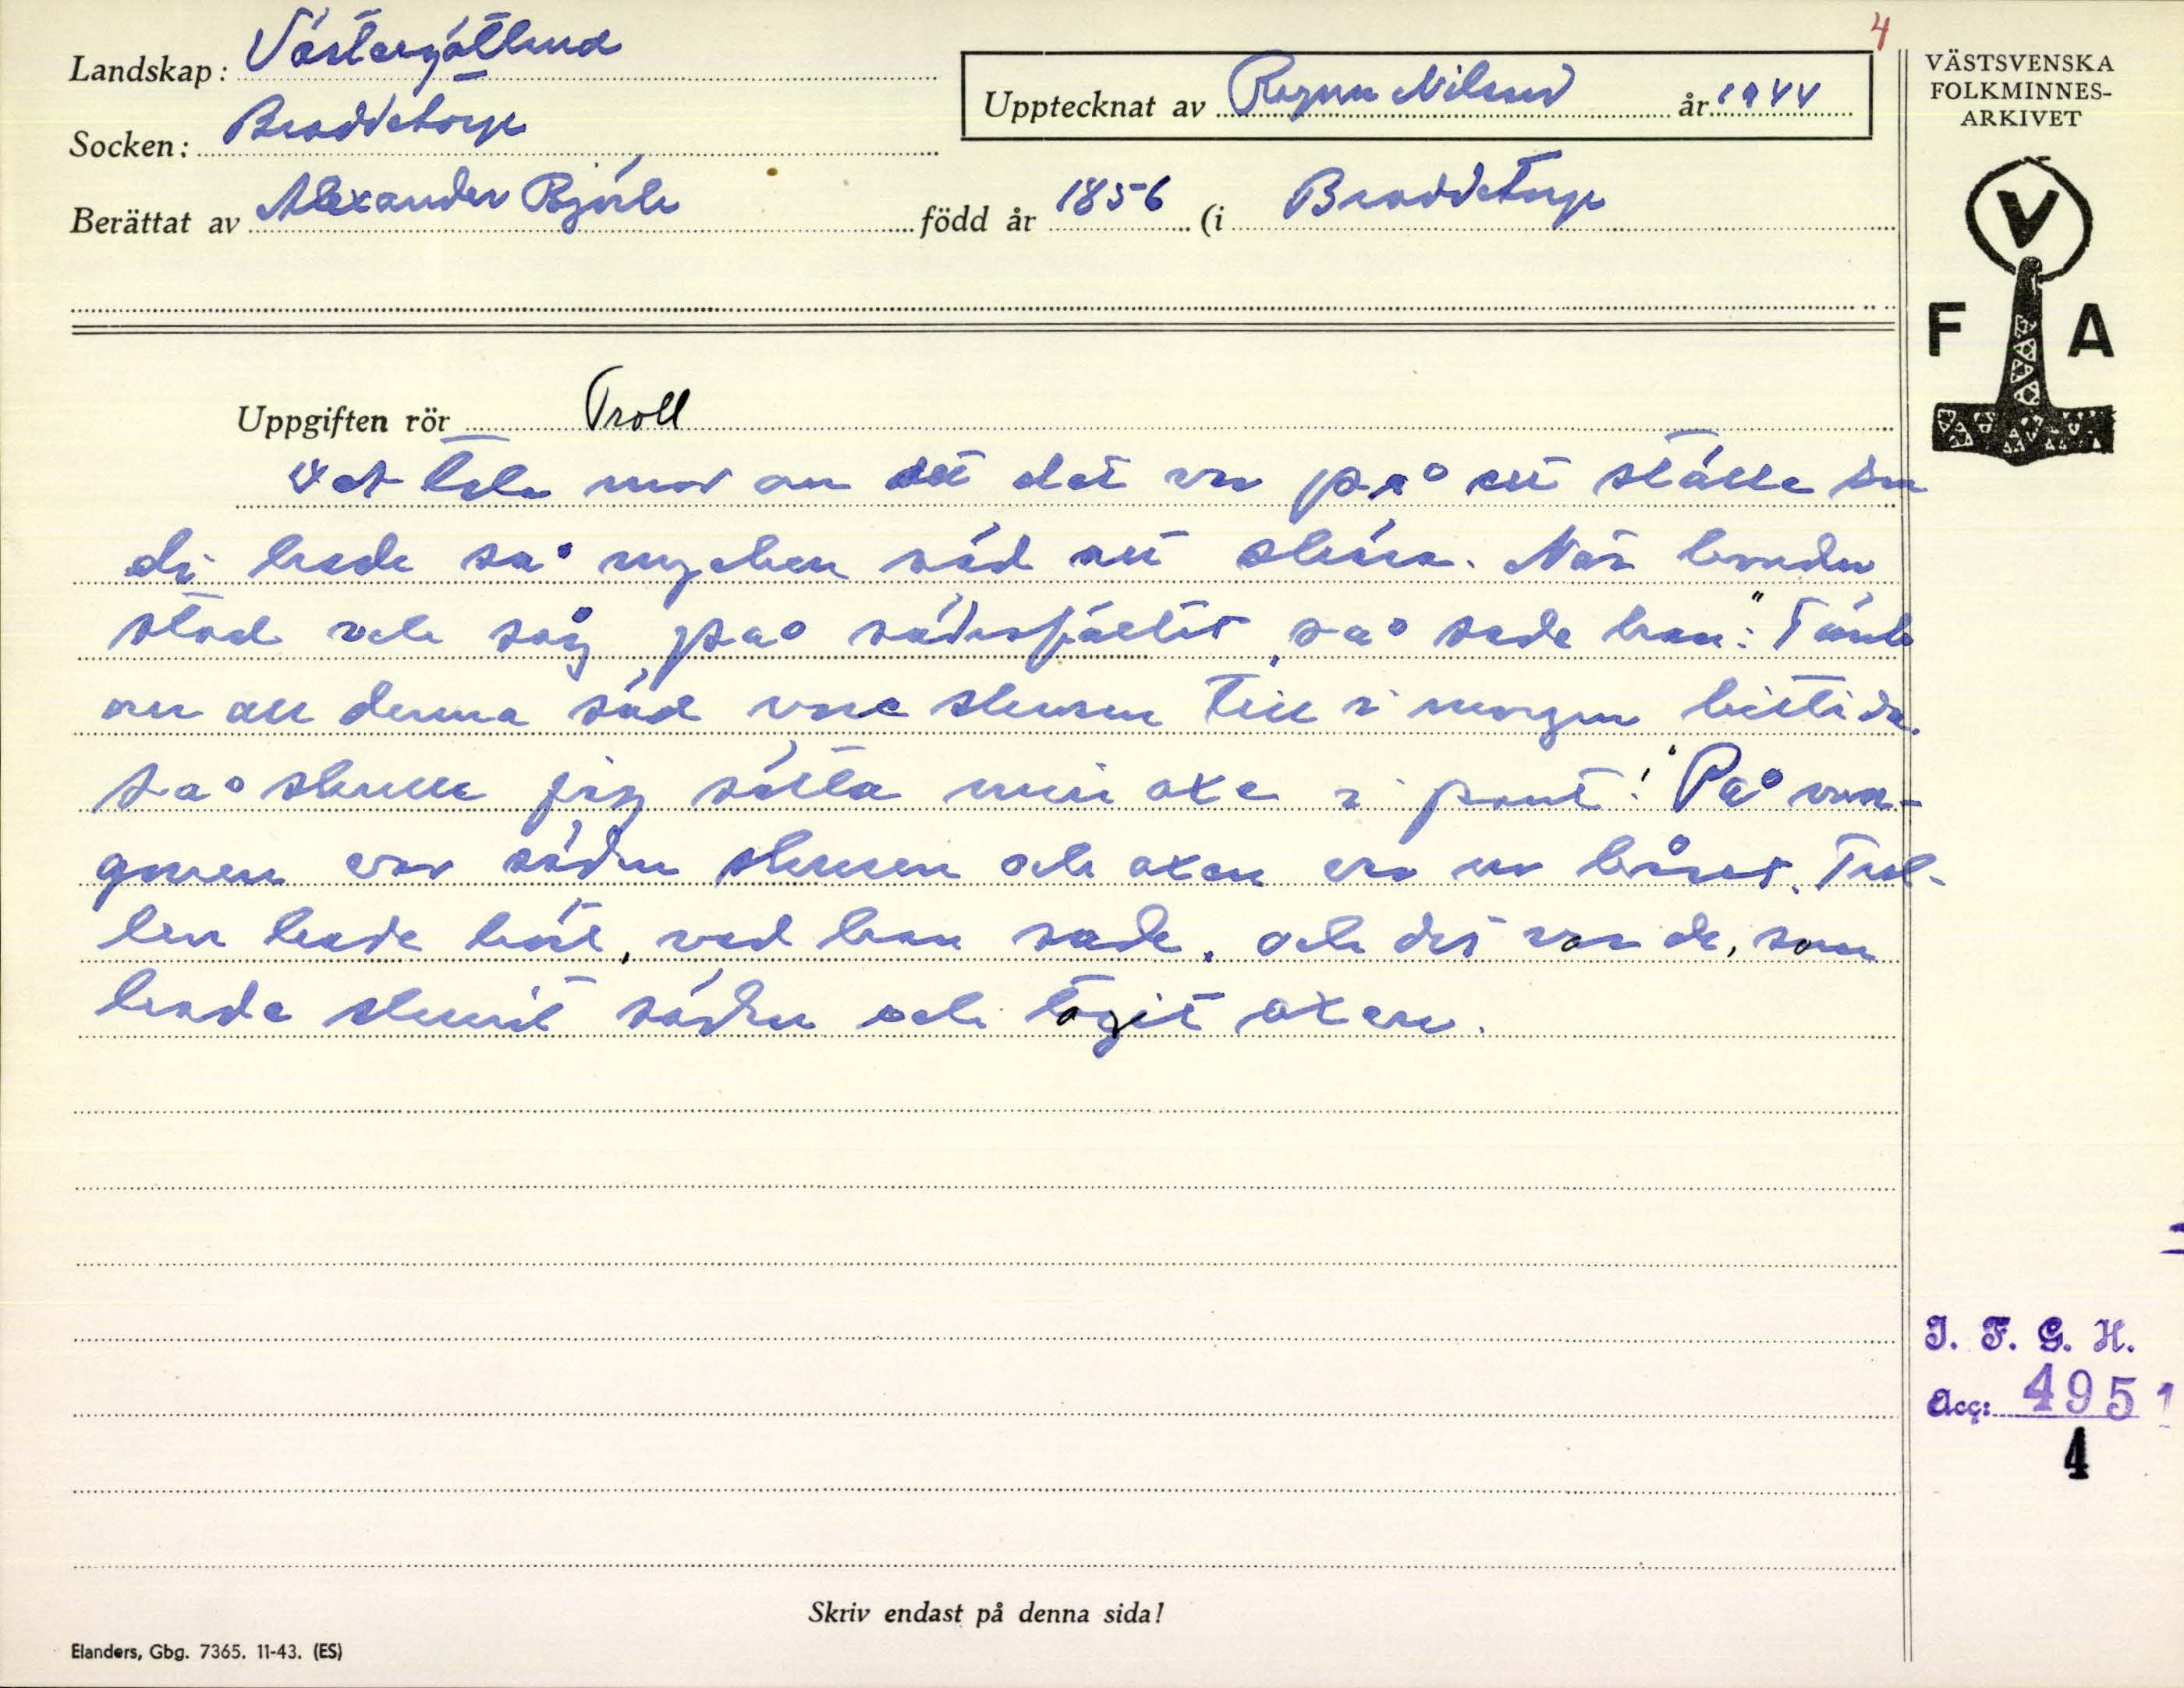 4
Landskap: Västergötland
Upptecknat av Ragnar Nilsson år 1944
Socken: Breddetorp
Berättat av Alexander Björk född år 1856 (i Breddetorp
VÄSTSVENSKA
FOLKMINNES-
ARKIVET
V
F A
Uppgiften rör Troll
tala mor om att det var på ett ställe som
di hade så mycken säd att skära. När bonden
stod och såg på sädesfältet, så sade han: "Tänk
om all denna säd vore skuren till i morgon bittida.
Så skulle jag sätta min oxe i pant!" På mor-
gonen var säden skuren och oxen var ur båset. Trol-
len hade hört, vad han sade, och det var de, som
hade skurit säden och tagit oxen.
I. F. G. H.
Acc: 4951
4
Skriv endast på denna sida!
Elanders, Gbg. 7365. 11-43. (ES)